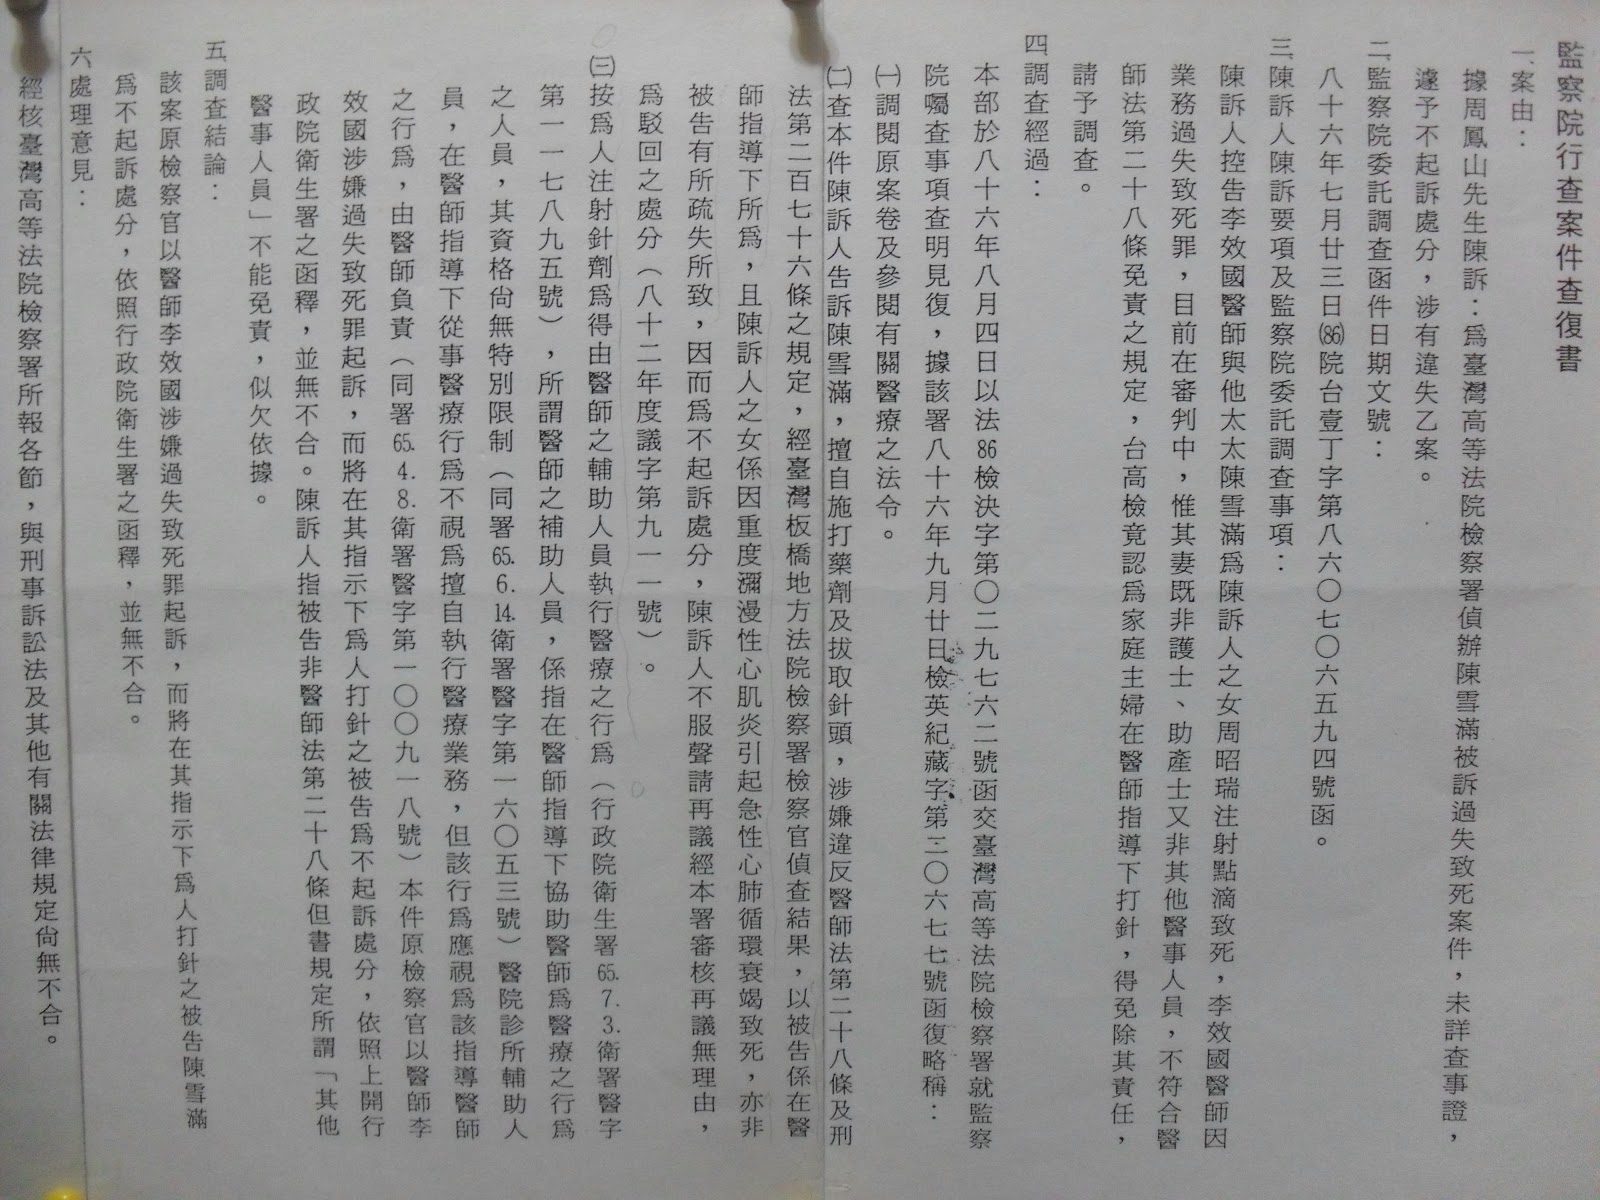 監察院行查案件查復書
一、案由：
據周鳳山先生陳訴：爲臺灣高等法院檢察署偵辦陳雪滿被訴過失致死案件，未詳查事證，
遽予不起訴處分，涉有違失乙案。
二、監察院委託調查函件日期文號：
八十六年七月廿三日(86)院台壹丁字第八六〇七〇六五九四號函。
三、陳訴人陳訴要項及監察院委託調查事項：
陳訴人控告李效國醫師與他太太陳雪滿爲陳訴人之女周昭瑞注射點滴致死，李效國醫師因
業務過失致死罪，目前在審判中，惟其妻既非護士、助產士又非其他醫事人員，不符合醫
師法第二十八條免責之規定，台高檢竟認爲家庭主婦在醫師指導下打針，得免除其責任，
請予調查。
四、調查經過：
本部於八十六年八月四日以法86檢決字第〇二九七六二號函交臺灣高等法院檢察署就監察
院囑查事項查明見復，據該署八十六年九月廿日檢英紀藏字第二〇六七七號函復略稱：
㈠調閱原案卷及參閱有關醫療之法令。
㈡查本件陳訴人告訴陳雪滿，擅自施打藥劑及拔取針頭，涉嫌違反醫師法第二十八條及刑
法第二百七十六條之規定，經臺灣板橋地方法院檢察署檢察官偵查結果，以被告係在醫
師指導下所爲，且陳訴人之女係因重度瀰漫性心肌炎引起急性心肺循環衰竭致死，亦非
被告有所疏失所致，因而爲不起訴處分，陳訴人不服聲請再議經本署審核再議無理由，
爲駁回之處分（八十二年度議字第九一一號）。
㈢按爲人注射針劑爲得由醫師之輔助人員執行醫療之行爲（行政院衛生署65.7.3.衛署醫字
第一一七八九五號），所謂醫師之補助人員，係指在醫師指導下協助醫師爲醫療之行爲
之人員，其資格尙無特別限制（同署65.6.14.衛署醫字第一六〇五三號）醫院診所輔助人
員，在醫師指導下從事醫療行爲不視爲擅自執行醫療業務，但該行爲應視爲該指導醫師
之行爲，由醫師負責（同署65.4.8.衛署醫字第一〇〇九一八號）本件原檢察官以醫師李
效國涉嫌過失致死罪起訴，而將在其指示下爲人打針之被告爲不起訴處分，依照上開行
政院衛生署之函釋，並無不合。陳訴人指被告非醫師法第二十八條但書規定所謂「其他
醫事人員」不能免責，似欠依據。
五、調查結論：
該案原檢察官以醫師李效國涉嫌過失致死罪起訴，而將在其指示下爲人打針之被告陳雪滿
爲不起訴處分，依照行政院衛生署之函釋，並無不合。
六、處理意見：
經核臺灣高等法院檢察署所報各節，與刑事訴訟法及其他有關法律規定尙無不合。